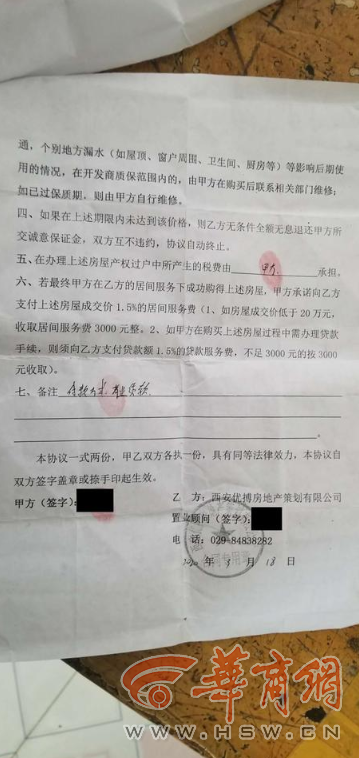 通，个别地方漏水（如屋顶、窗户周围、卫生间、厨房等）等影响后期使
用的情况，在开发商质保范围内的，由甲方在购买后联系相关部门维修；
如已过保质期，则由甲方自行维修。
四、如果在上述期限内未达到该价格，则乙方无条件全额无息退还甲方所
交诚意保证金，双方互不违约，协议自动终止。
五、在办理上述房屋产权过户中所产生的税费由 甲方 承担。
六、若最终甲方在乙方的居间服务下成功购得上述房屋，甲方承诺向乙方
支付上述房屋成交价 1.5%的居间服务费（1、如房屋成交价低于 20 万元，
收取居间服务费 3000 元整。2、如甲方在购买上述房屋过程中需办理贷款
手续，则须向乙方支付贷款额 1.5%的贷款服务费，不足 3000 元的按 3000
元收取）。
七、备注 付款方式 贷款
本协议一式两份，甲乙双方各执一份，具有同等法律效力，本协议自
双方签字盖章或捺手印起生效。
甲方（签字）：
乙 方：西安优搏房地产策划有限公司
置业顾问（签字）：
电 话：029-84838282
年 3 月 18 日
华商网
WWW.HSW.CN